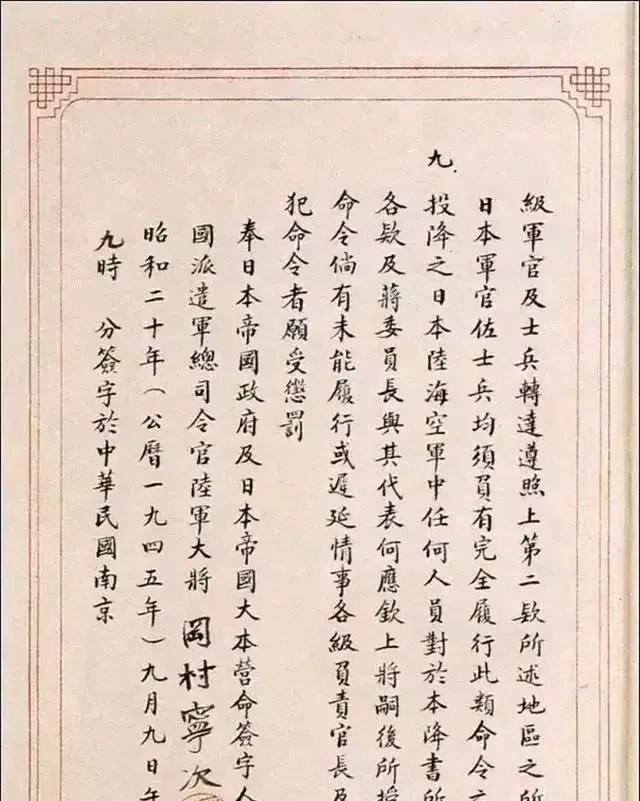 級軍官及士兵轉達遵照上第二欵所述地區之所
日本軍官佐士兵均須負有完全履行此類命令之
九.
投降之日本陸海空軍中任何人員對於本降書所
各欵及蔣委員長與其代表何應欽上將嗣後所授
命令倘有未能履行或遲延情事各級負責官長及
犯命令者願受懲罰
奉日本帝國政府及日本帝國大本營命簽字人
國派遣軍總司令官陸軍大將 岡村寧次
昭和二十年(公曆一九四五年)九月九日午
九時 分簽字於中華民國南京